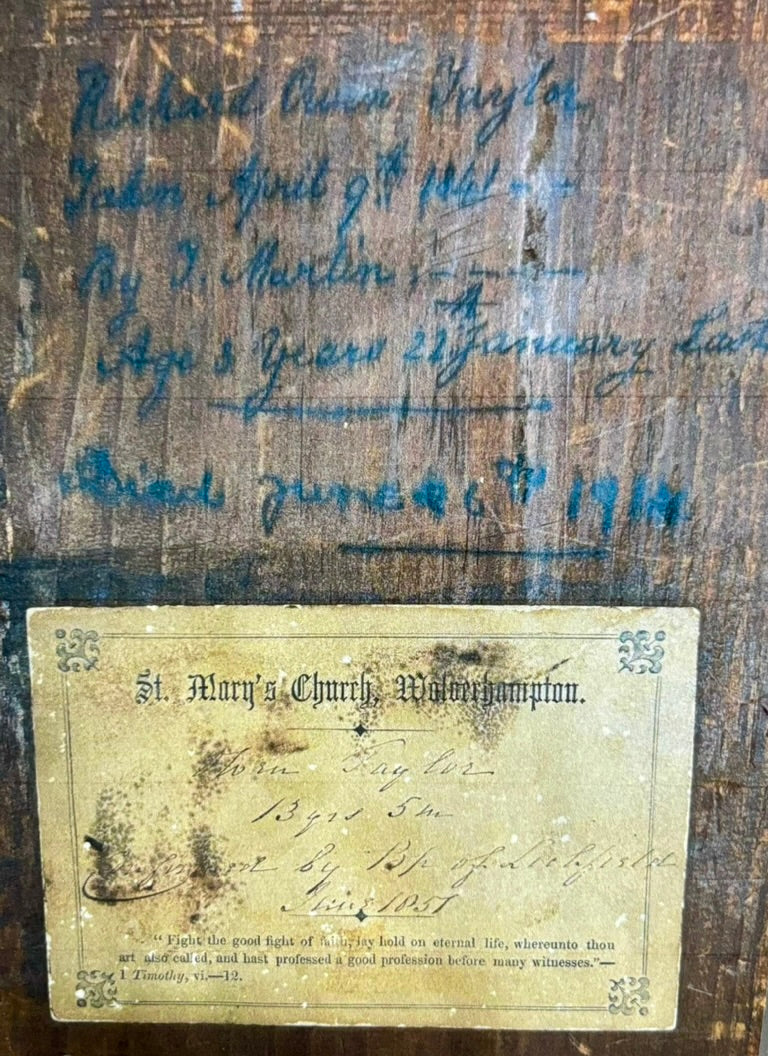 Richard Owen Taylor
Taken April 9th 1841
By T. Martin
Age 3 Years 21 January Last
Died June 6th 1914
St. Mary's Church, Wolverhampton.
Taylor
13 yrs 5 m
by Bp of Lichfield
June 1851
"Fight the good fight of faith, lay hold on eternal life, whereunto thou
art also called, and hast professed a good profession before many witnesses."—
1 Timothy, vi.—12.